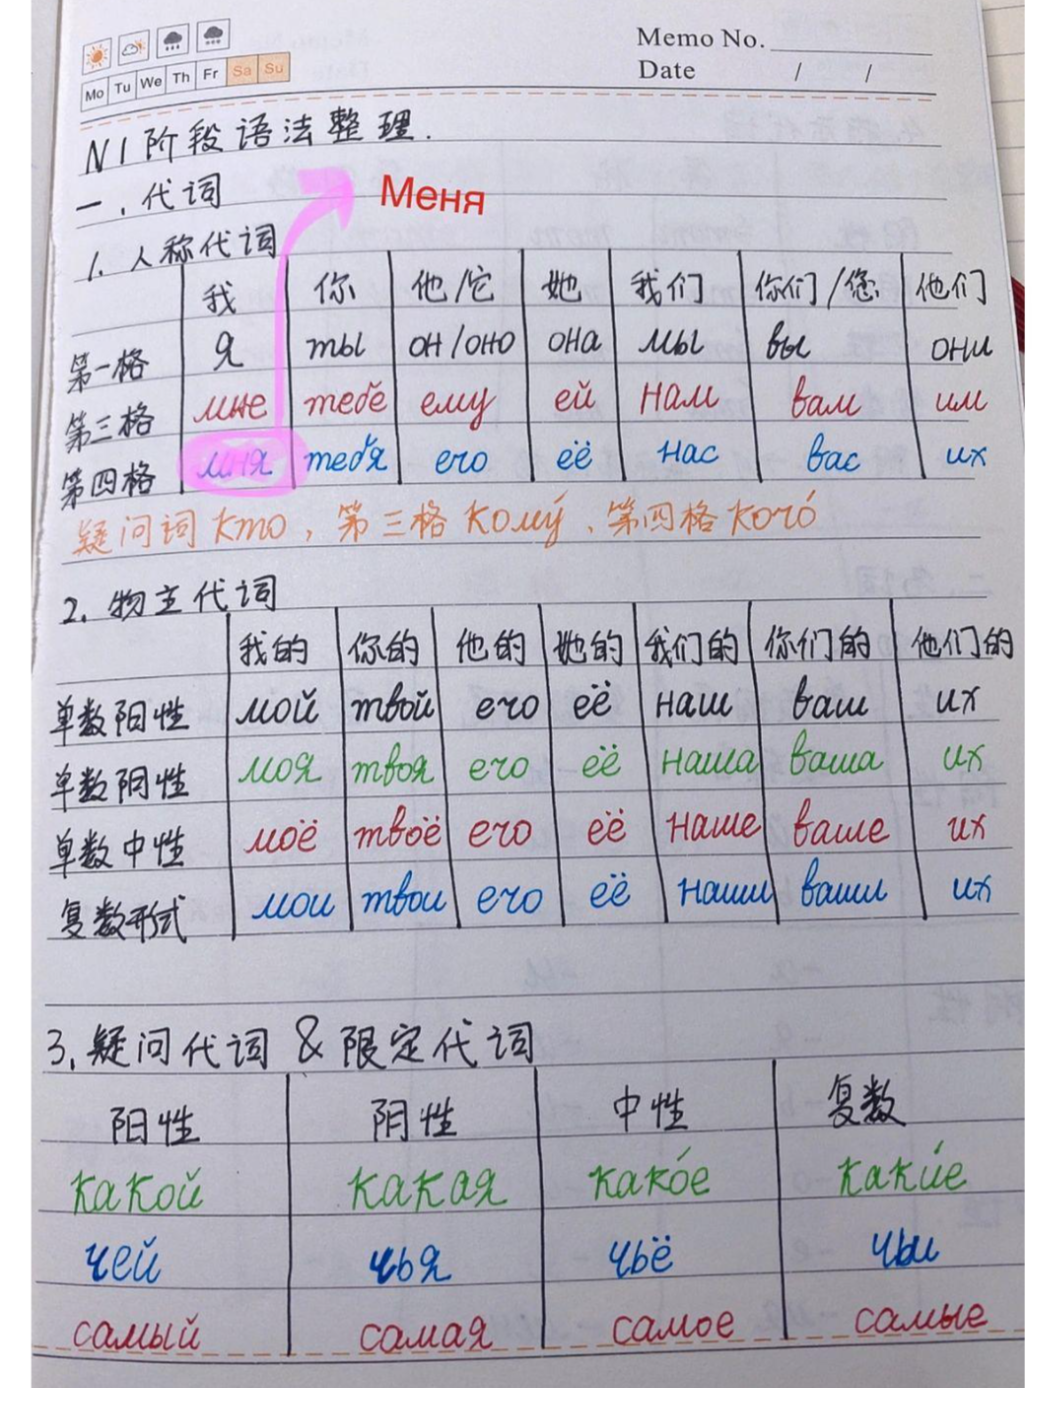 Memo No.
Mo Tu We Th Fr Sa Su
Date / /
N1阶段语法整理.
一.代词
Меня
1.人称代词
我 你 他/它 她 我们 你们/您 他们
第一格 я ты он/оно она мы вы они
第三格 мне тебе ему ей нам вам им
第四格 мня тебя его её нас вас их
疑问词 кто,第三格 комý、第四格 когó
2.物主代词
我的 你的 他的 她的 我们的 你们的 他们的
单数阳性 мой твой его её наш ваш их
单数阴性 моя твоя его её наша ваша их
单数中性 моё твоё его её наше ваше их
复数形式 мои твои его её наши ваши их
3.疑问代词 & 限定代词
阳性 阴性 中性 复数
какой какая какóе каки́е
чей чья чьё чьи
самый самая самое самые